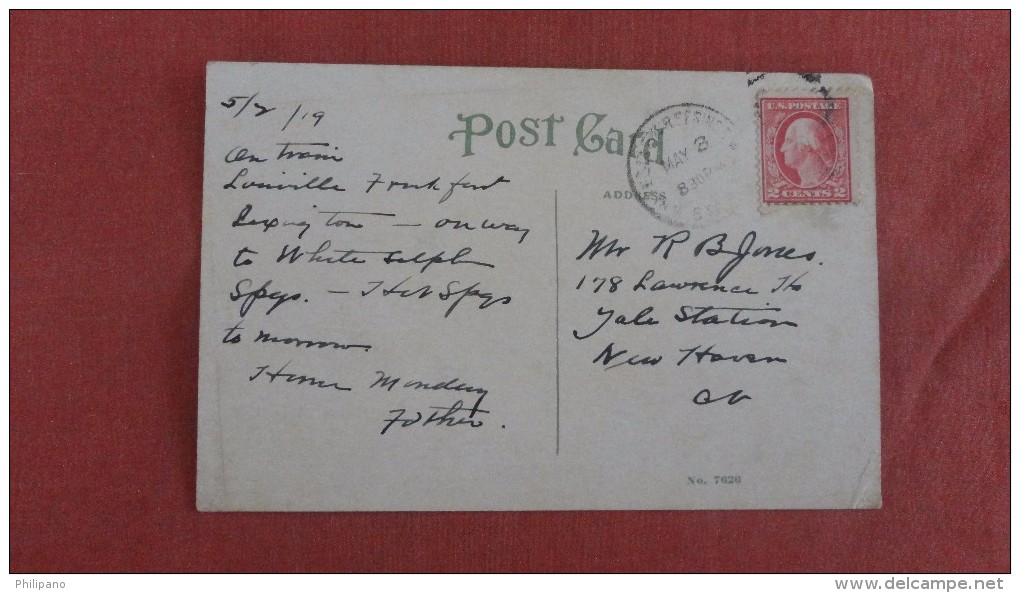 5/2/19
On train
Louiville Frankfort
Lexington — on way
to White Sulph
Spgs. — Hot Spgs
to morrow.
Home Monday
Father.
Post Card
ADDRESS
MAY 3
830P
U.S. POSTAGE
2 CENTS 2
Mr R B Jones.
178 Lawrence Ha
Yale Station
New Haven
Ct
No. 7626
Philipano
www.delcampe.net